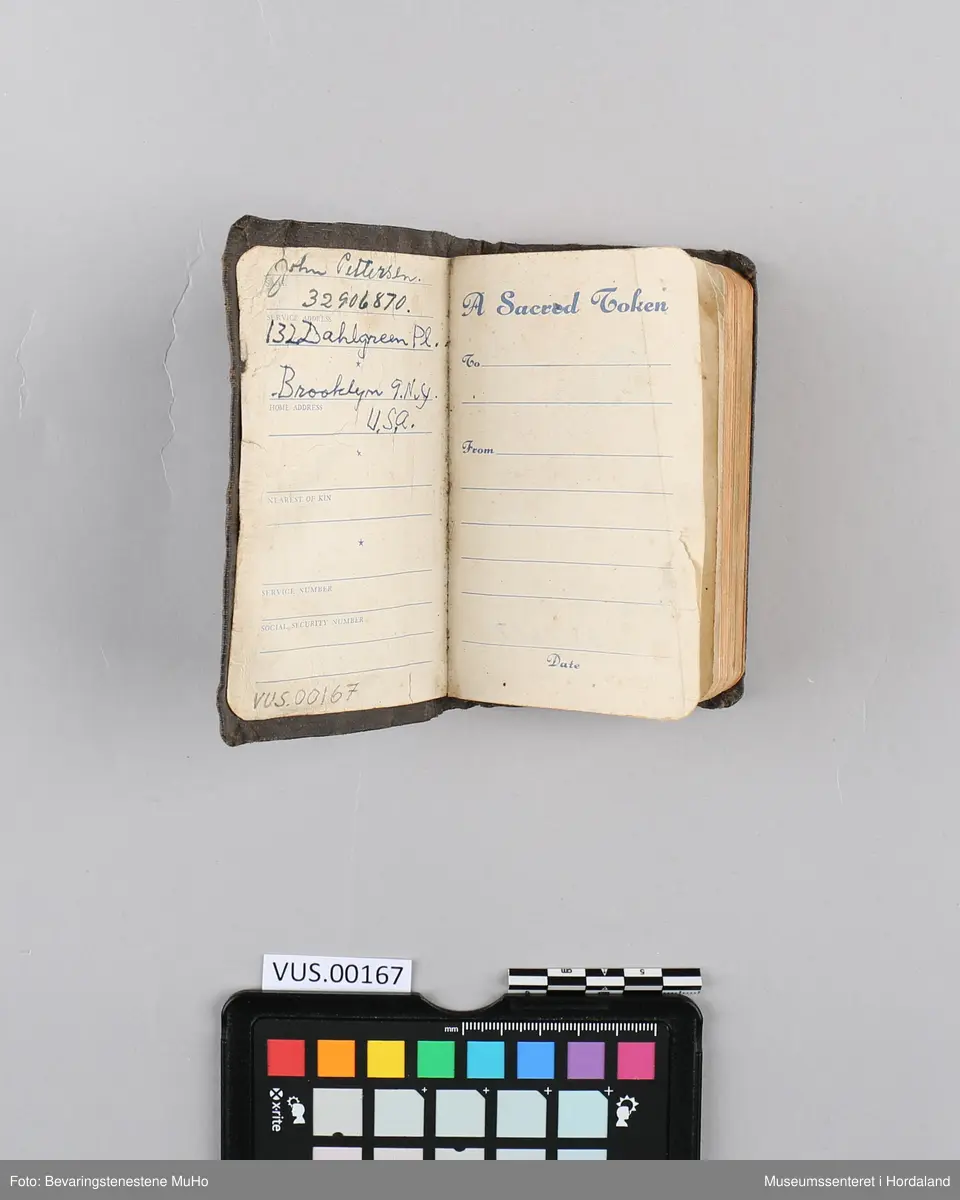 John Pettersen.
32906870.
SERVICE ADDRESS
132 Dahlgreen Pl.
Brooklyn 9. N.Y.
HOME ADDRESS
U.S.A.
NEAREST OF KIN
SERVICE NUMBER
SOCIAL SECURITY NUMBER
VUS.00167
A Sacred Token
To
From
Date
VUS.00167
cm
5
mm
x-rite
Foto: Bevaringstenestene MuHo
Museumssenteret i Hordaland